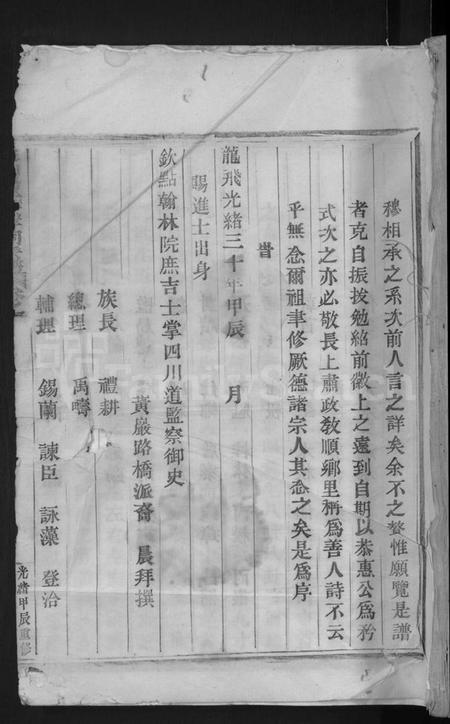 穆相承之系次前人言之詳矣余不之贅惟願覽是譜
者克自振拔勉紹前徽上之遠到自期以恭惠公爲矜
式次之亦必敬長上肅政敎順鄉里稱爲善人詩不云
乎無念爾祖聿修厥德諸宗人其念之矣是爲序
旹
龍飛光緒三十年甲辰　月
賜進士出身
欽點翰林院庶吉士掌四川道監察御史
黃巖路橋派裔　晨拜撰
族長　禮耕
總理　禹疇
輔理　錫蘭　諫臣　詠藻　登治
光緒甲辰重修